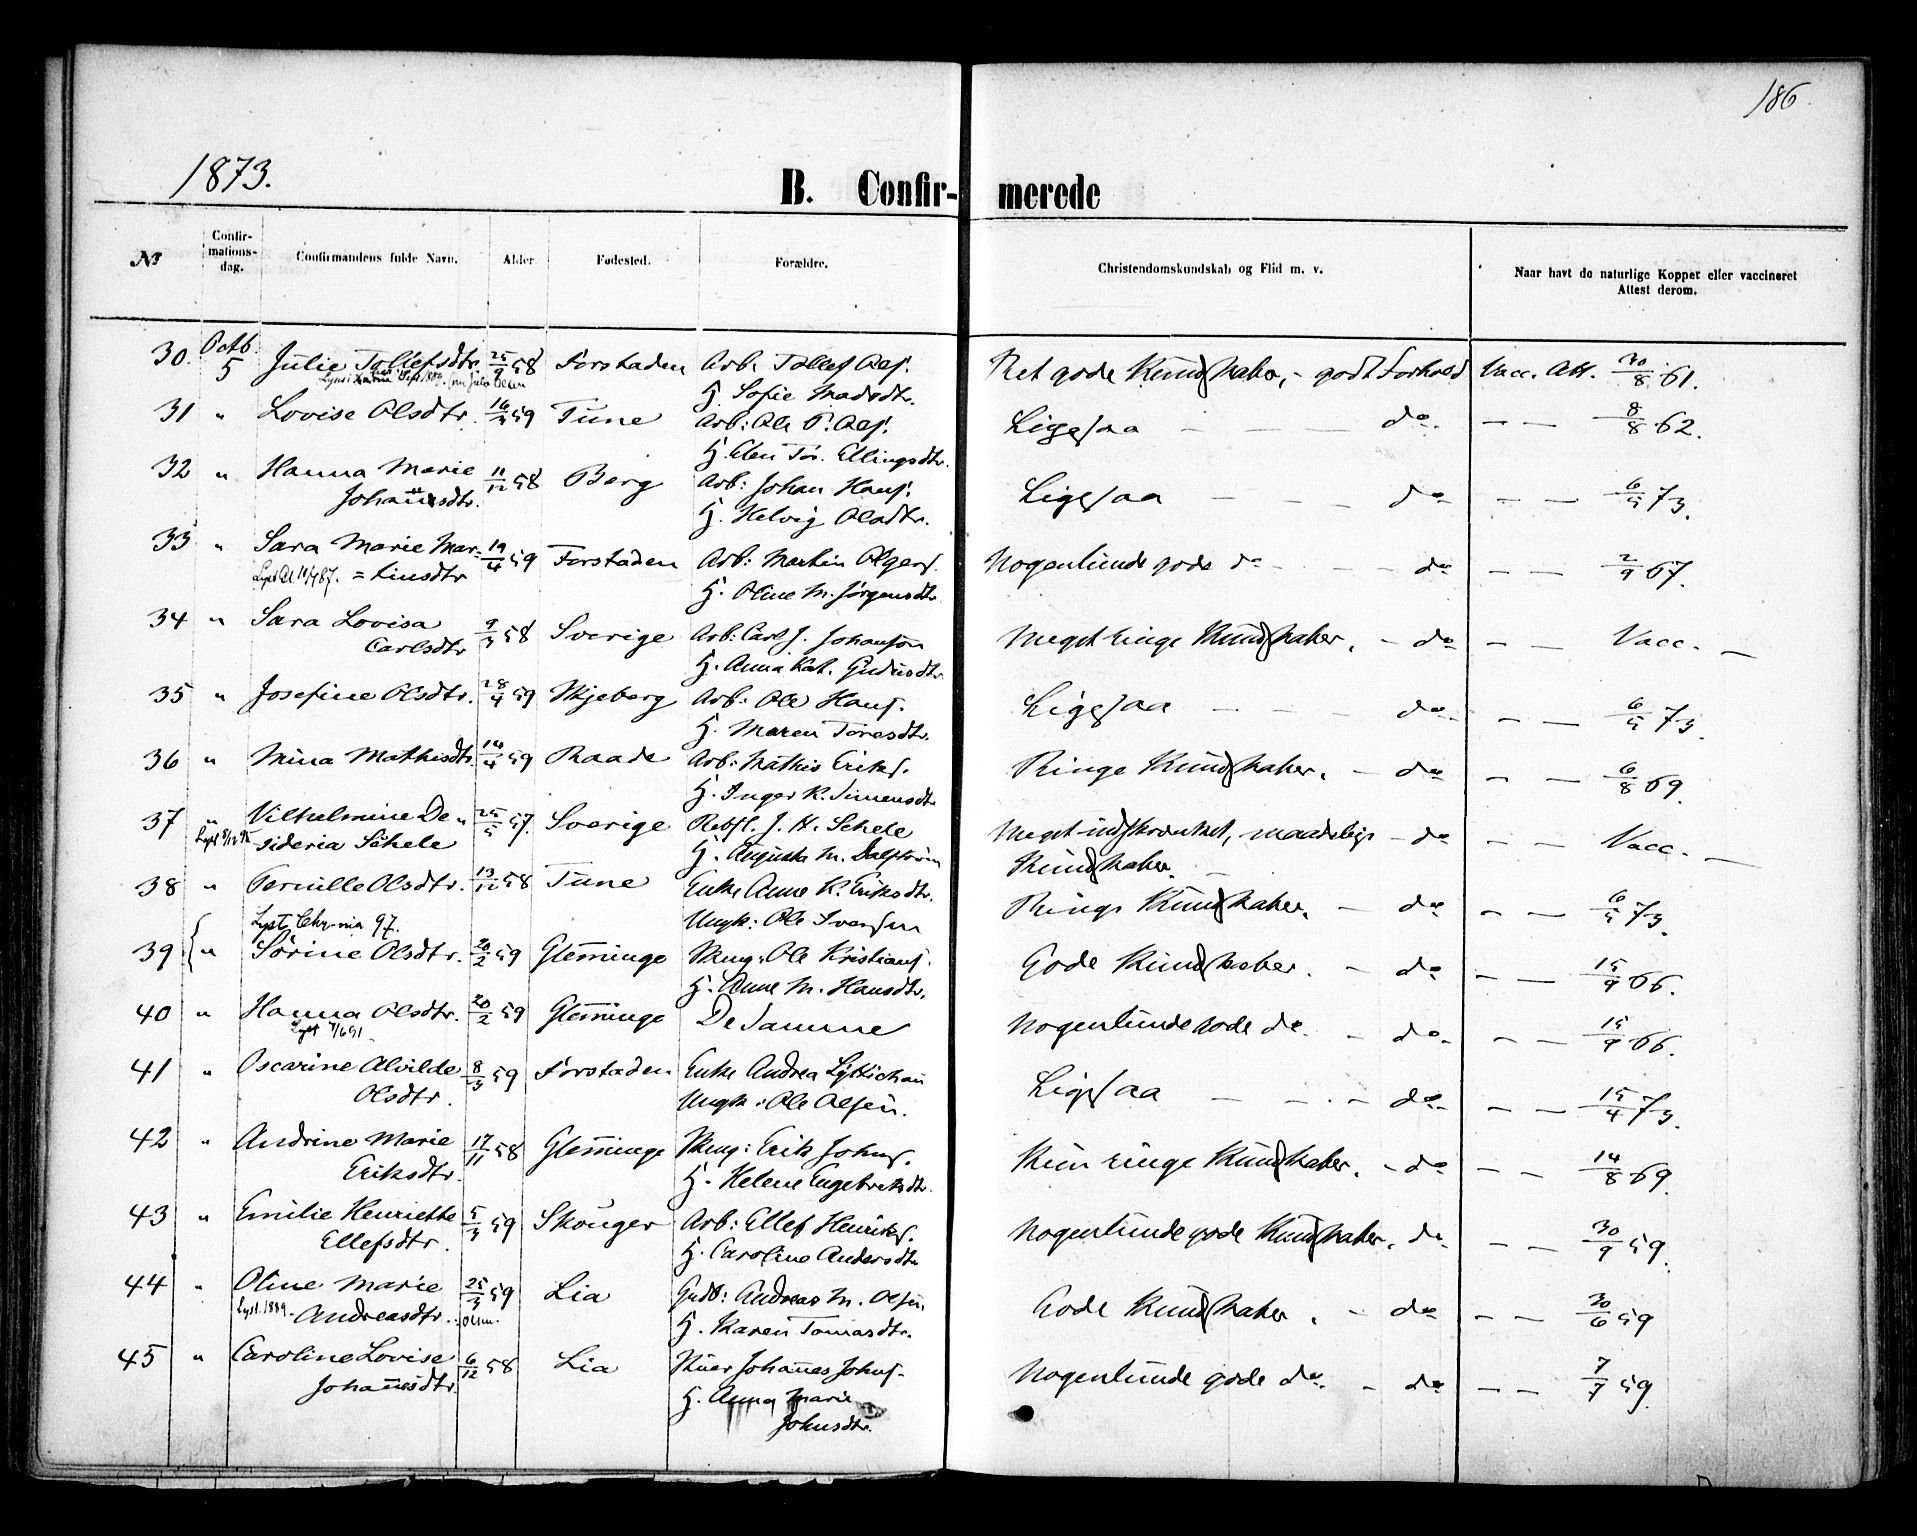 186
1873.
B. Confir- merede
No
Confir-
mations-
dag.
Confirmandens fulde Navn.
Alder
Fødested.
Forældre.
Christendomskundskab og Flid m. v.
Naar havt de naturlige Kopper eller vaccineret
Attest derom.
30. Octb. 5 Julie Tollefsdtr. 25/9 58 Forstaden Arb. Tollef Olsf. Ret gode Kundskaber, - godt Forhold Vacc. Att. 20/8 61.
H. Sofie Madsdtr.
31 " Lovise Olsdtr. 16/3 59 Tune Arb: Ole P. Olsf. Ligesaa — — — do. — — 8/8 62.
H. Elen Tor. Ellingsdtr.
32 " Hanna Marie 11/12 58 Berg Arb: Johan Hansf. Ligesaa — — do — — 6/5 73.
Johannesdtr. H. Helvig Olsdtr.
33 " Sara Marie Mar= 19/4 59 Forstaden Arb: Martin Olsen Nogenlunde gode do — — do — — 2/9 67.
=tinsdtr H. Oline M. Jørgensdtr.
34 " Sara Lovisa 9/3 58 Sverige Arb: Carl J. Johanson Meget ringe Kundskaber. - do — — Vacc. —
Carlsdtr H. Anna Kat.
35 " Josefine Olsdtr. 28/4 59 Skjeberg Arb: Ole Hansf. Ligesaa — — — do — — 6/5 73.
H. Maren Toresdtr.
36 " Mina Mathisdtr. 14/4 59 Raade Arb: Mathis Eriksf. Ringe Kundskaber. — do — — 6/8 69.
H. Inger K. Simensdtr
37 " Vilhelmine De- 25/5 57. Sverige Rebsl. J. H. Schele Meget indskrænket, maadelige - do — — Vacc. —
sideria Schele H. Augusta M. Dalström Kundskaber.
38 " Pernille Olsdtr. 13/12 58 Tune Enke Anne K. Eriksdtr. Ringe Kundskaber. — do — — 6/5 73.
Lyst Chr-nia 97. Ungk: Ole Svensen
39 " Sørine Olsdtr. 20/2 59 Glemminge Ole Kristiansf. Gode Kundskaber. — do — — 15/9 66.
H. Anne M. Hansdtr.
40 " Hanna Olsdtr. 20/2 59 Glemminge De Samme Nogenlunde gode do. — do. — — 15/9 66.
Lyst 7/6 91
41 " Oscarine Alvilde 8/3 59 Forstaden Enke Andrea Lyttichau Ligesaa — — do. — — 15/4 73.
Olsdtr. Ungk: Ole Olsen.
42 " Andrine Marie 17/11 58 Glemminge Erik Johnsf. Kun ringe Kundskaber. - do — — 14/8 69.
Eriksdtr. H. Helene Engebretsdtr.
43 " Emilie Henriette 5/3 59 Skouger Arb: Ellef Henriksf. Nogenlunde gode Kundskaber. do — — 30/9 59.
Ellefsdtr. H. Caroline Andersdtr
44 " Oline Marie 25/3 59 Lia Gudb: Andreas M. Olsen Gode Kundskaber. — do — — 30/6 59
Lyst. 1889. Andreasdtr. Olsen. H. Karen Tomasdtr.
45 " Caroline Lovise 6/12 58 Lia Johannes Johnsf. Nogenlunde gode do. — do — — 7/7 59.
Johannesdtr. H. Anna Marie
Johnsdtr.